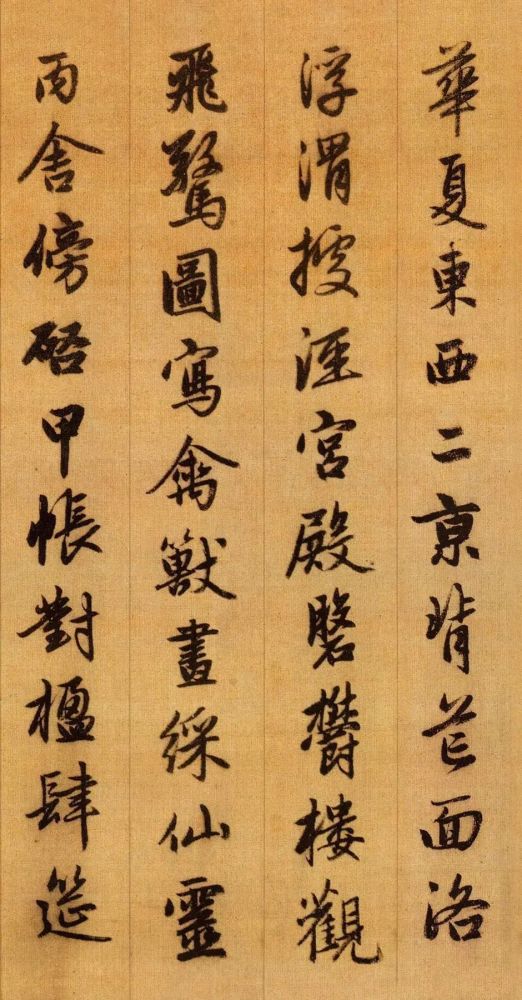 華夏東西二京背芒面洛
浮渭據涇宮殿盤鬱樓觀
飛驚圖寫禽獸畫綵仙靈
丙舍傍啓甲帳對楹肆筵